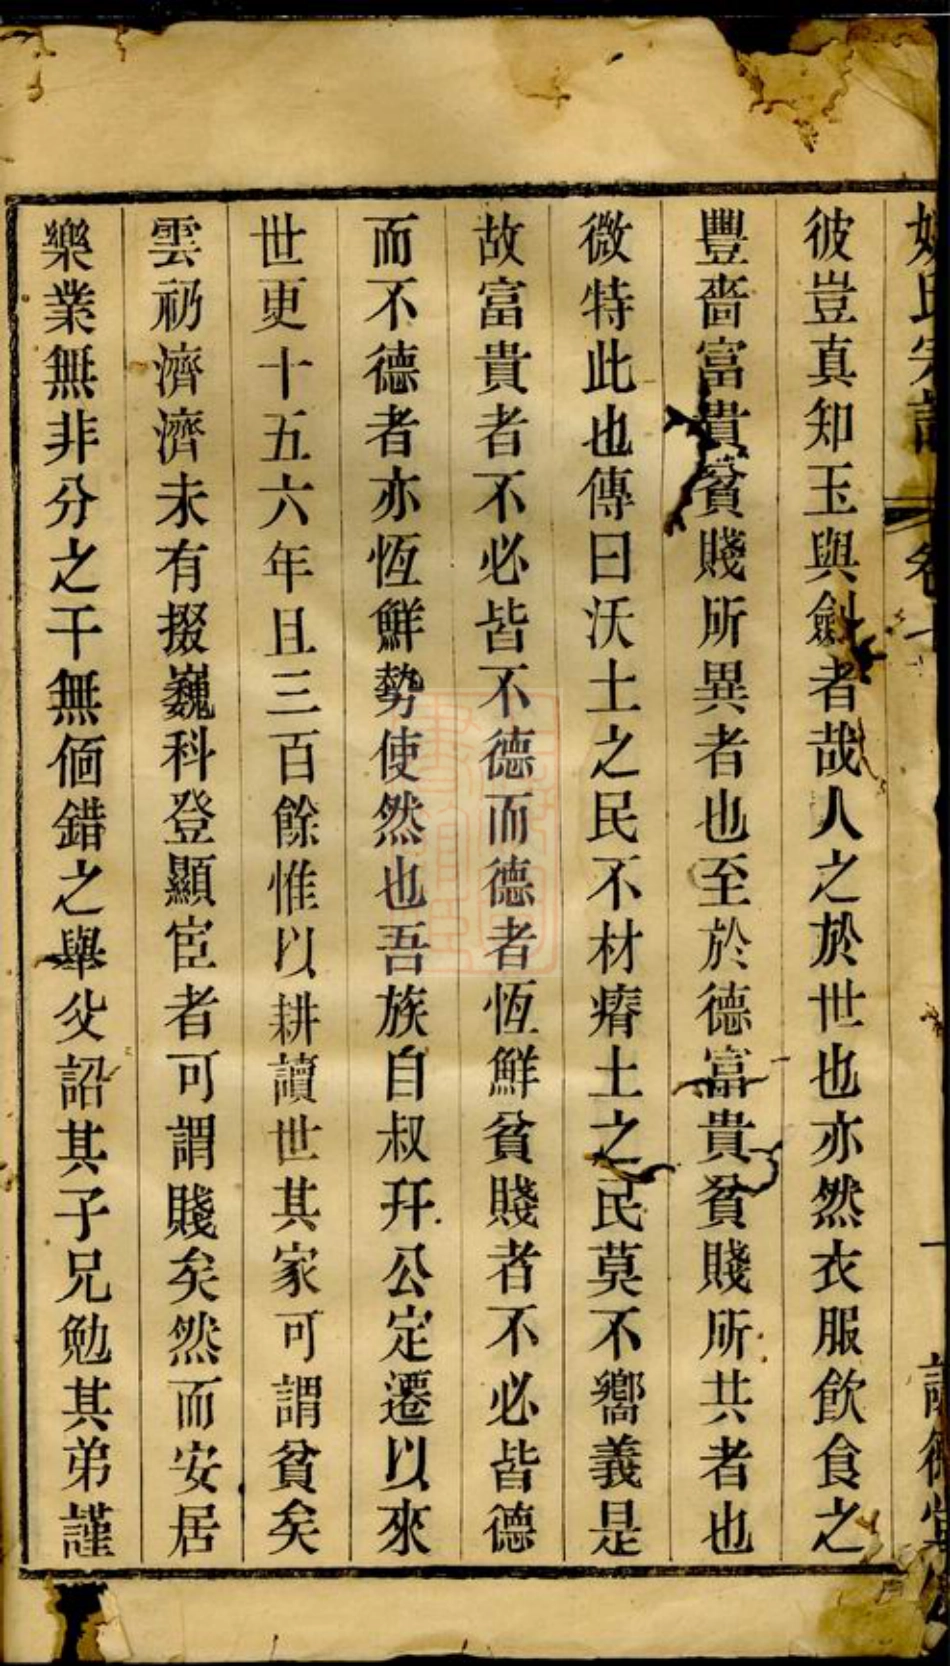 彼豈真知玉與劍者哉人之於世也亦然衣服飲食之
豐嗇富貴貧賤所異者也至於德富貴貧賤所共者也
微特此也傳曰沃土之民不材瘠土之民莫不嚮義是
故富貴者不必皆不德而德者恆鮮貧賤者不必皆德
而不德者亦恆鮮勢使然也吾族自叔玕公定遷以來
世更十五六年且三百餘惟以耕讀世其家可謂貧矣
雲礽濟濟未有掇巍科登顯宦者可謂賤矣然而安居
樂業無非分之干無偭錯之舉父詔其子兄勉其弟謹